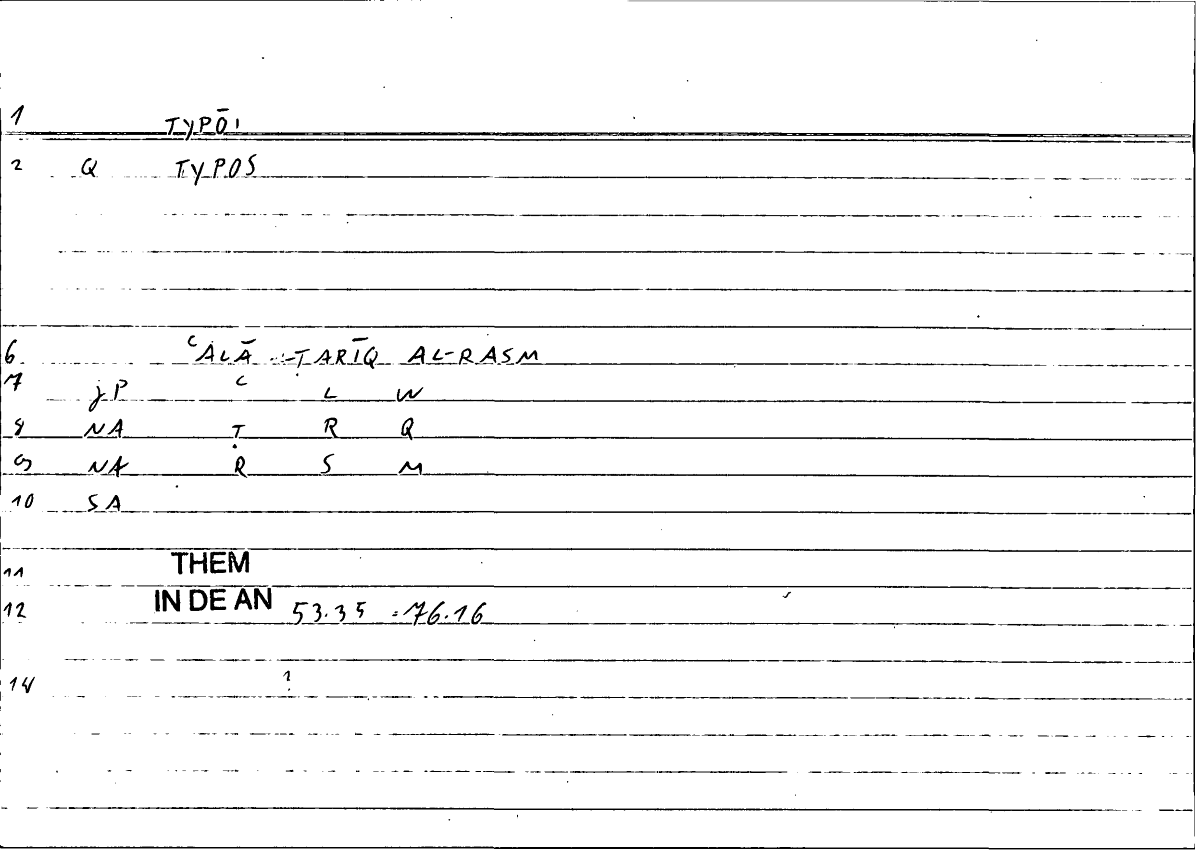 1 TYPŌI
2 Q TYPOS
6 ʿALĀ ṬARĪQ AL-RASM
7 jP ʿ L W
8 NA Ṭ R Q
9 NA R S M
10 SA
11 THEM
12 IN DE AN 53.35 = 76.16
14 1